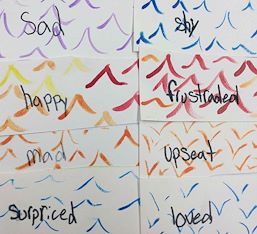 sad
shy
happy
frustraded
mad
upseat
surpriced
loved